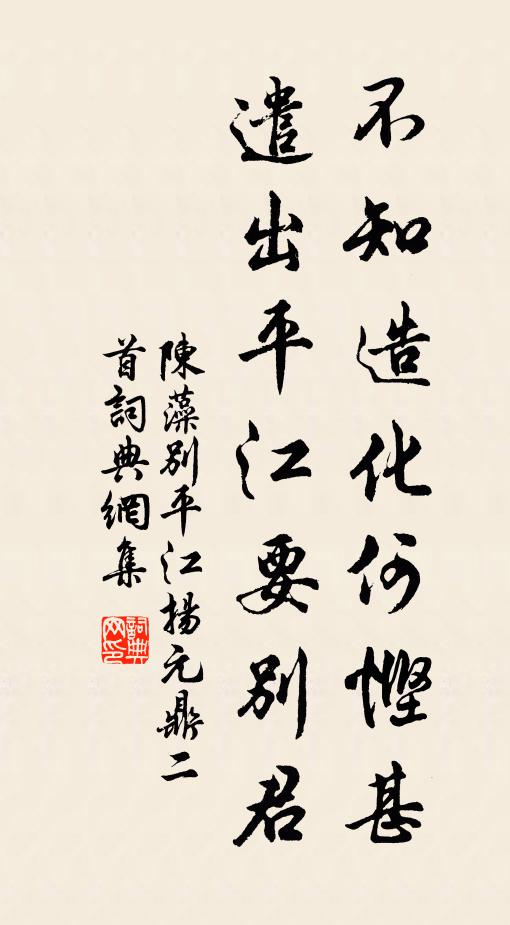 不知造化何慳甚
遣出平江要別君
陳藻別平江揚元鼎二
首詞典網集
詞典
网印